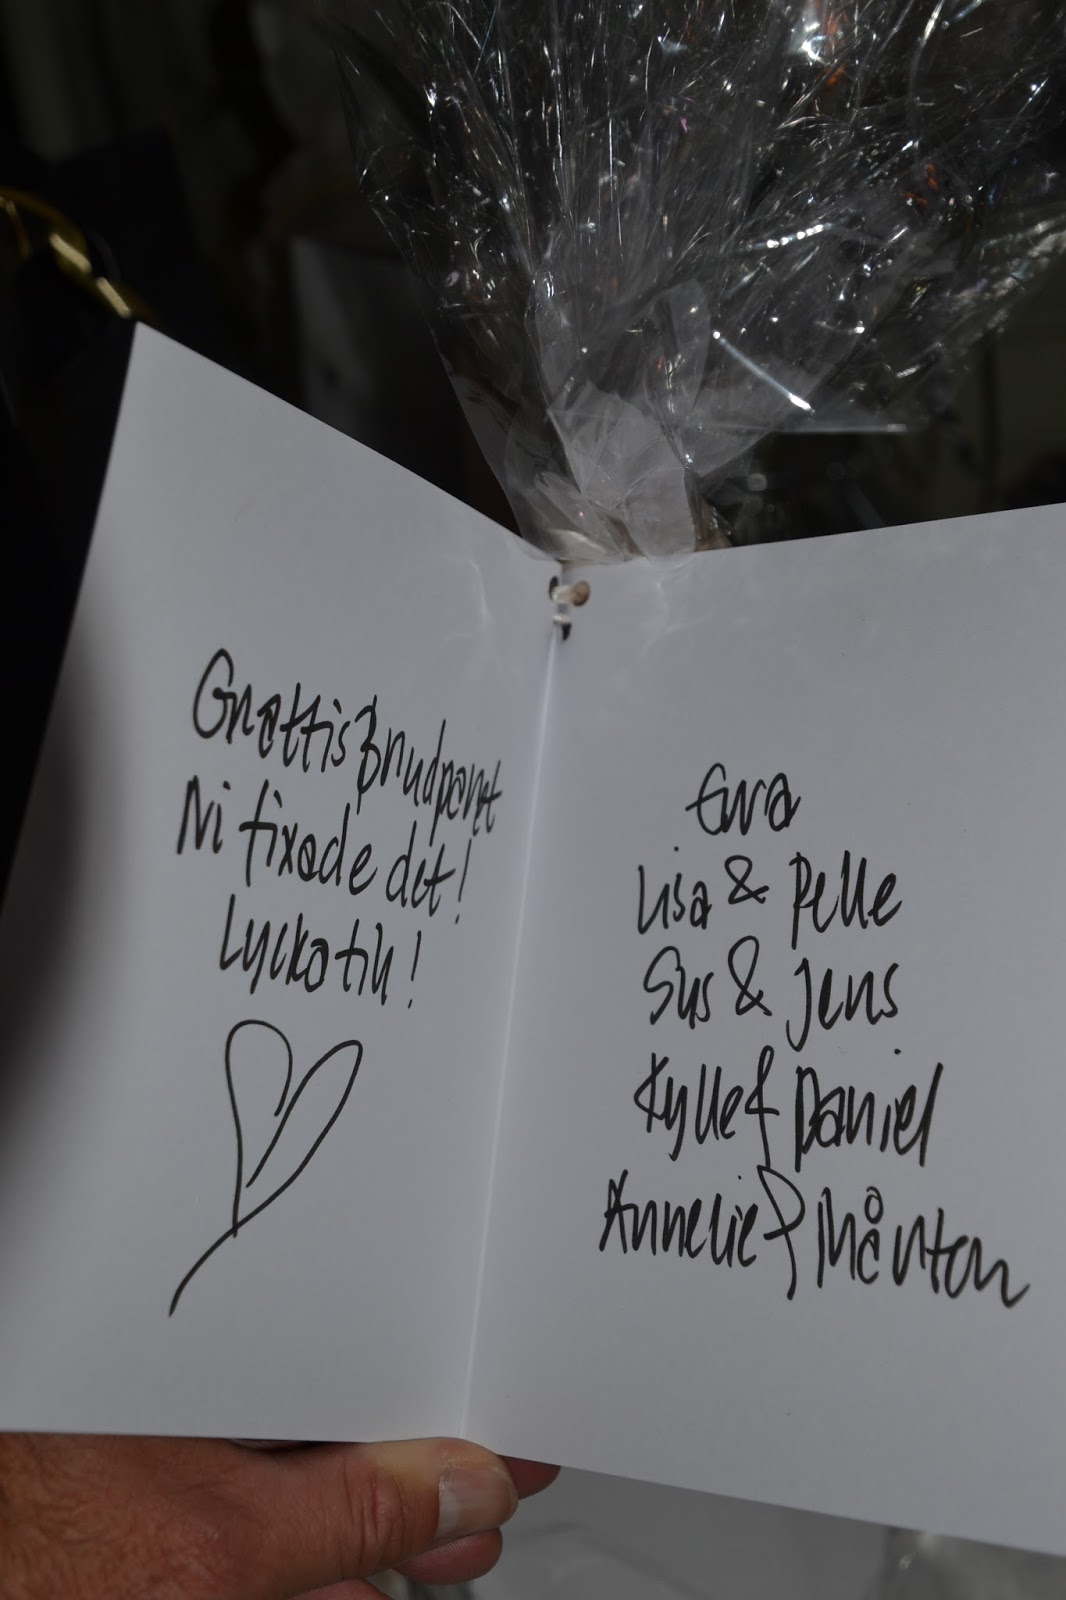 Grattis Brudparet
Ni fixade det!
Lycka till!
Ewa
Lisa & Pelle
Sus & Jens
Kylle & Daniel
Annelie & Mårten